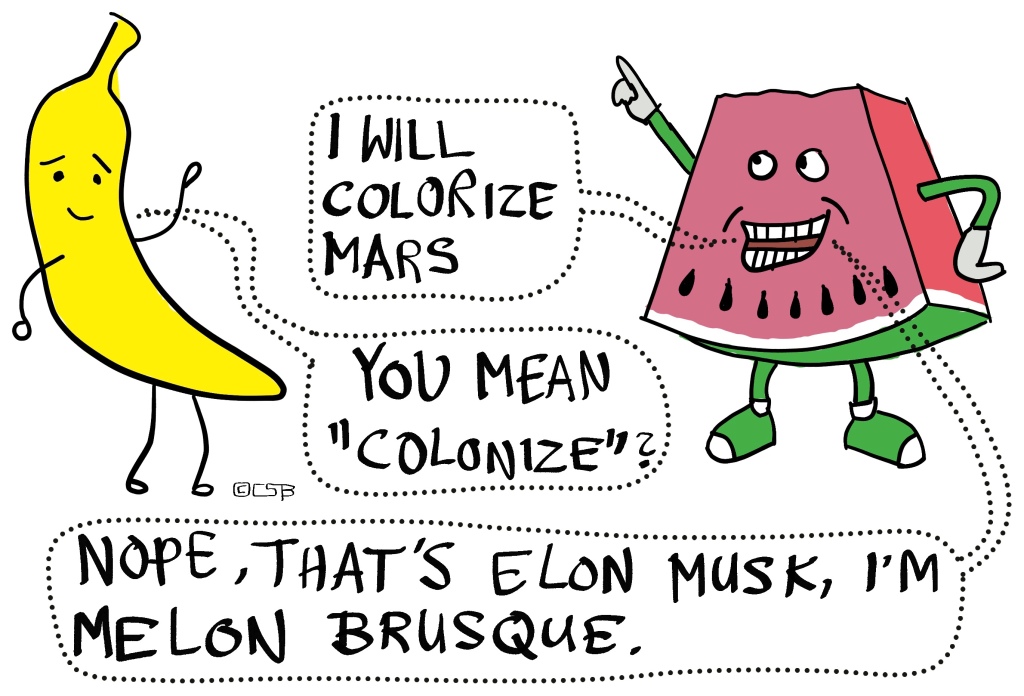 I WILL
COLORIZE
MARS
YOU MEAN
"COLONIZE"?
©CSB
NOPE, THAT'S ELON MUSK, I'M
MELON BRUSQUE.